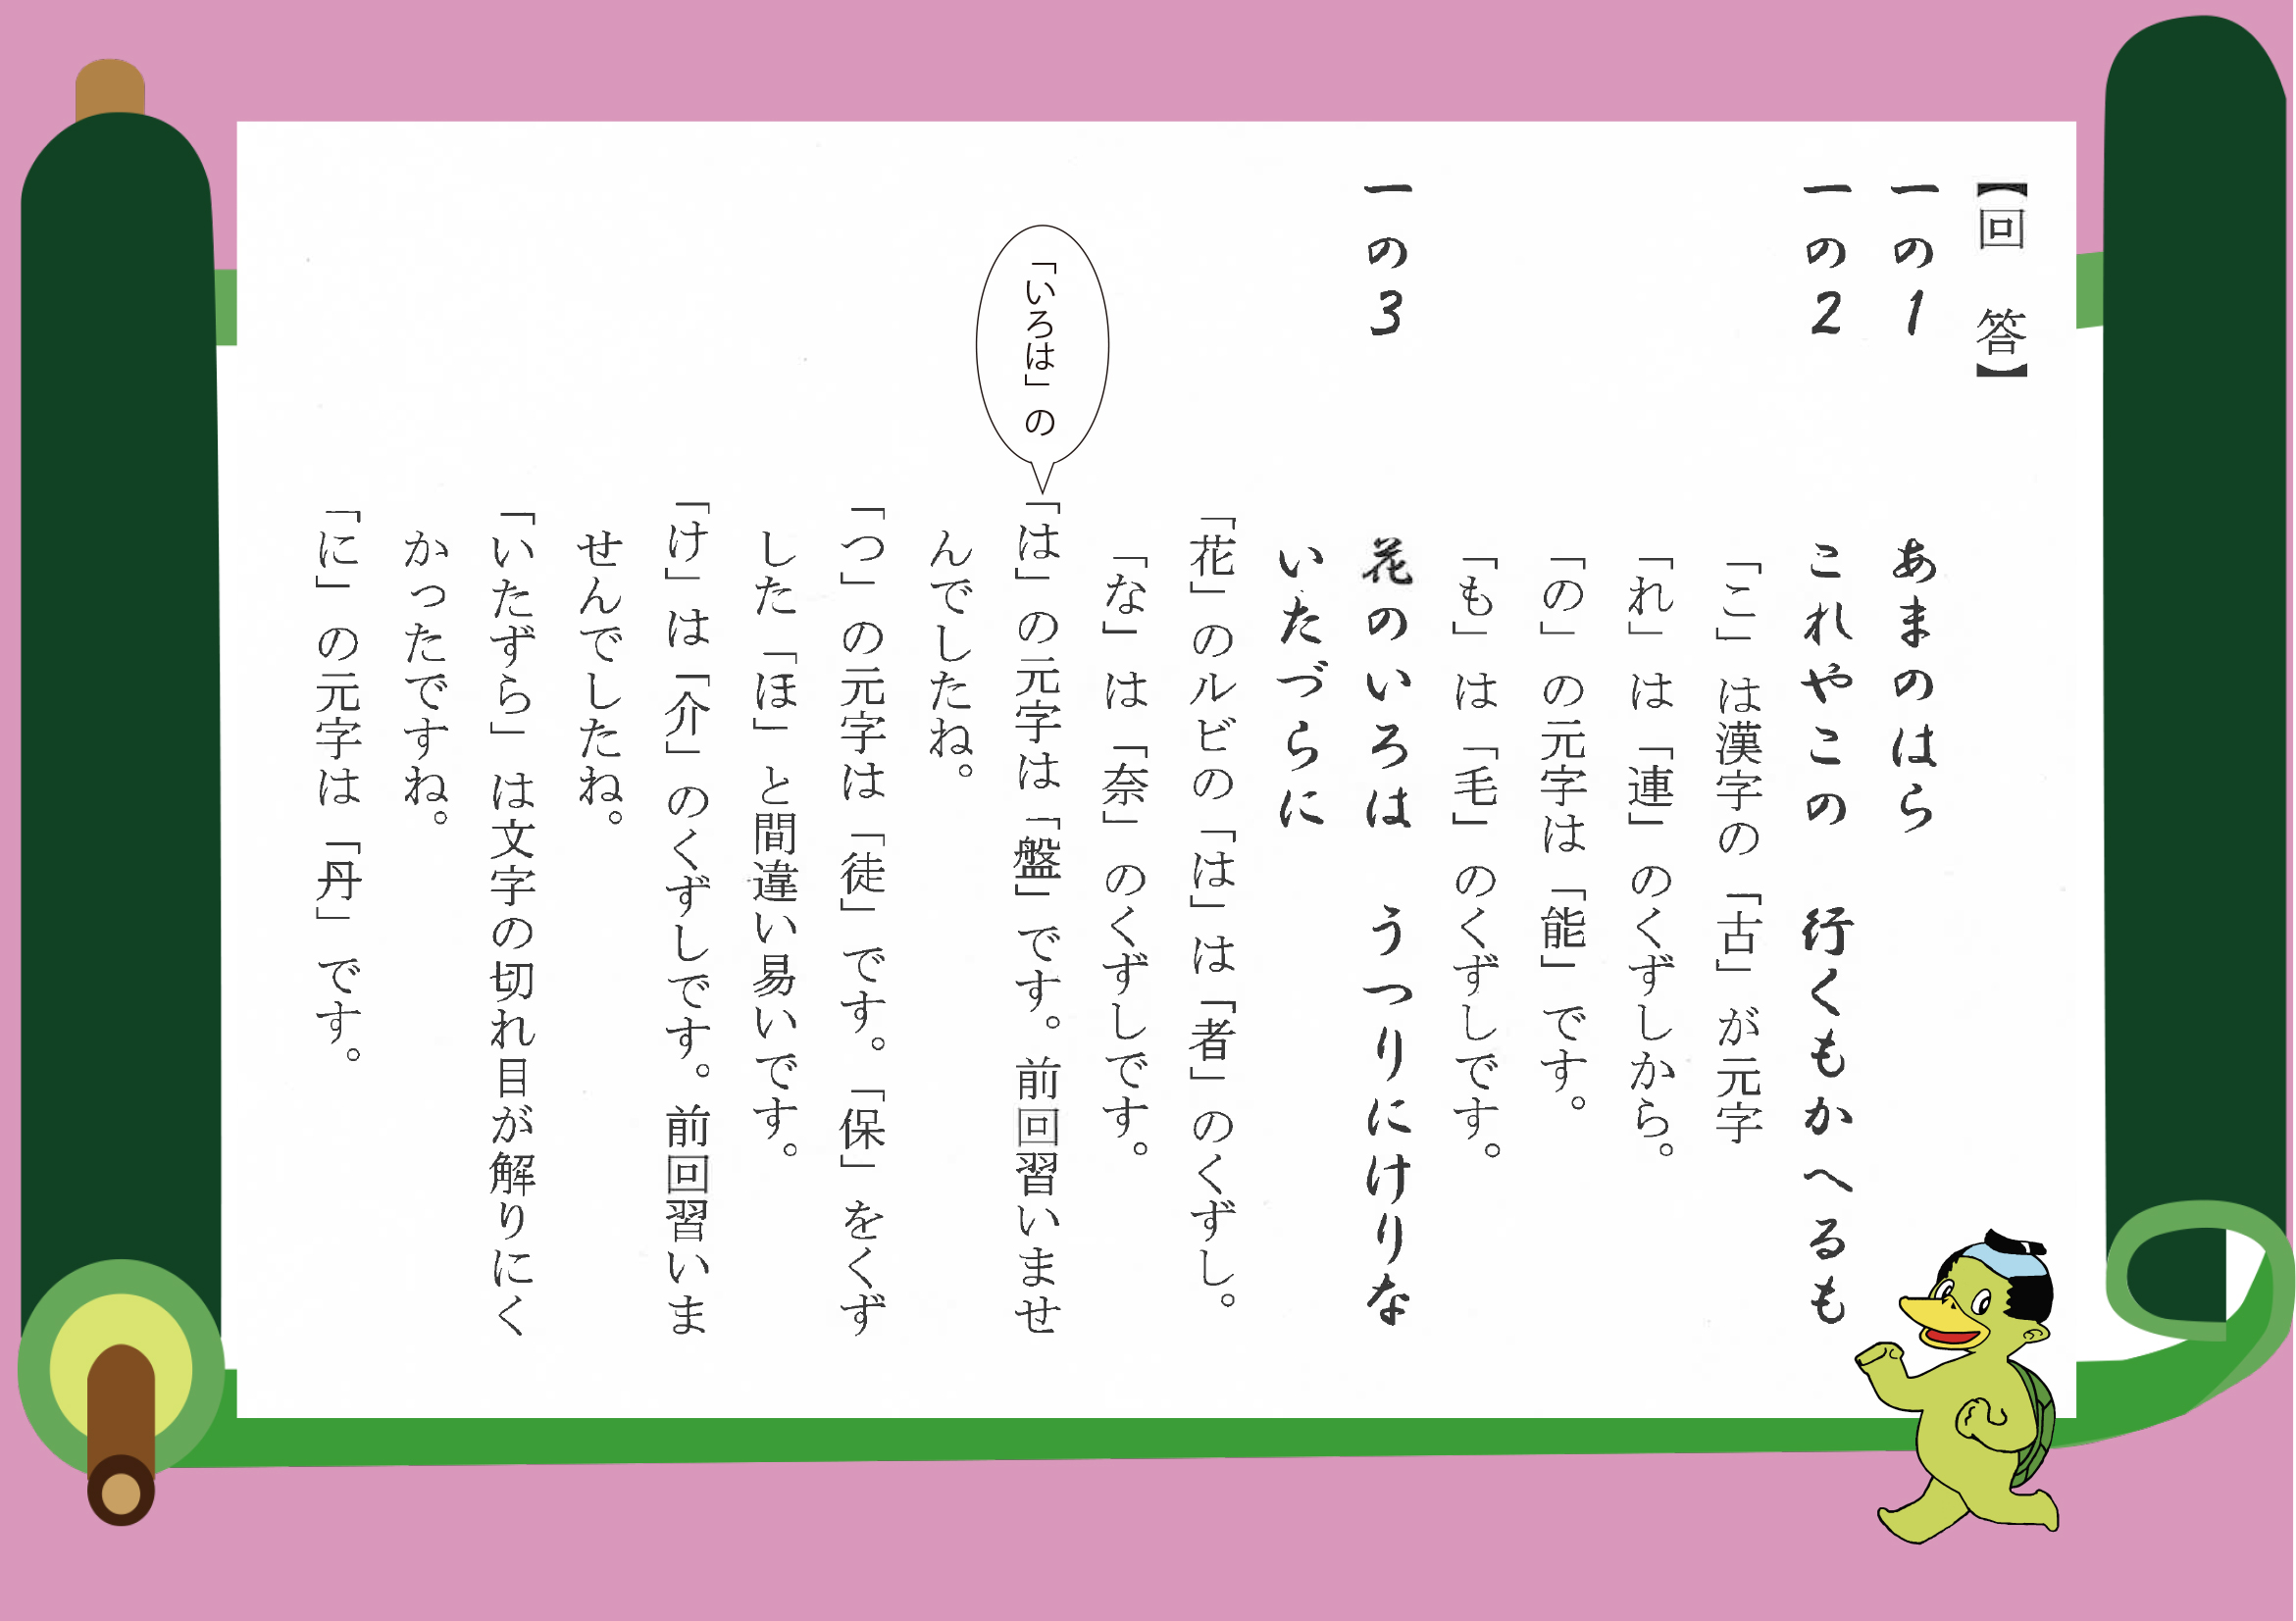 【回　答】
一の1　あまのはら
一の2　これやこの　行くもかへるも
「こ」は漢字の「古」が元字
「れ」は「連」のくずしから。
「の」の元字は「能」です。
「も」は「毛」のくずしです。
一の3　花のいろは　うつりにけりな
いたづらに
「花」のルビの「は」は「者」のくずし。
「な」は「奈」のくずしです。
「いろは」の
「は」の元字は「盤」です。前回習いませ
んでしたね。
「つ」の元字は「徒」です。「保」をくず
した「ほ」と間違い易いです。
「け」は「介」のくずしです。前回習いま
せんでしたね。
「いたずら」は文字の切れ目が解りにく
かったですね。
「に」の元字は「丹」です。